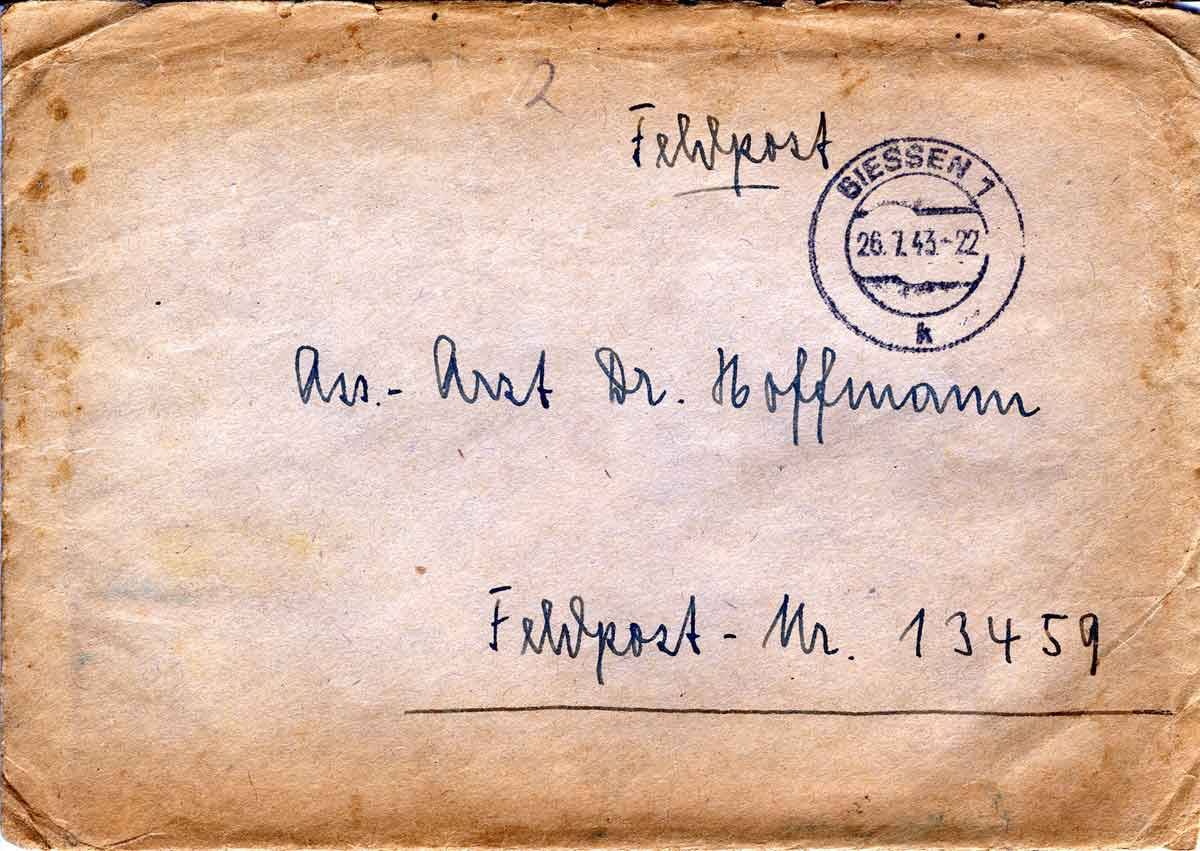 2
Feldpost
GIESSEN 1
26.7.43-22
k
Ass.- Arzt Dr. Hoffmann
Feldpost - Nr. 13459